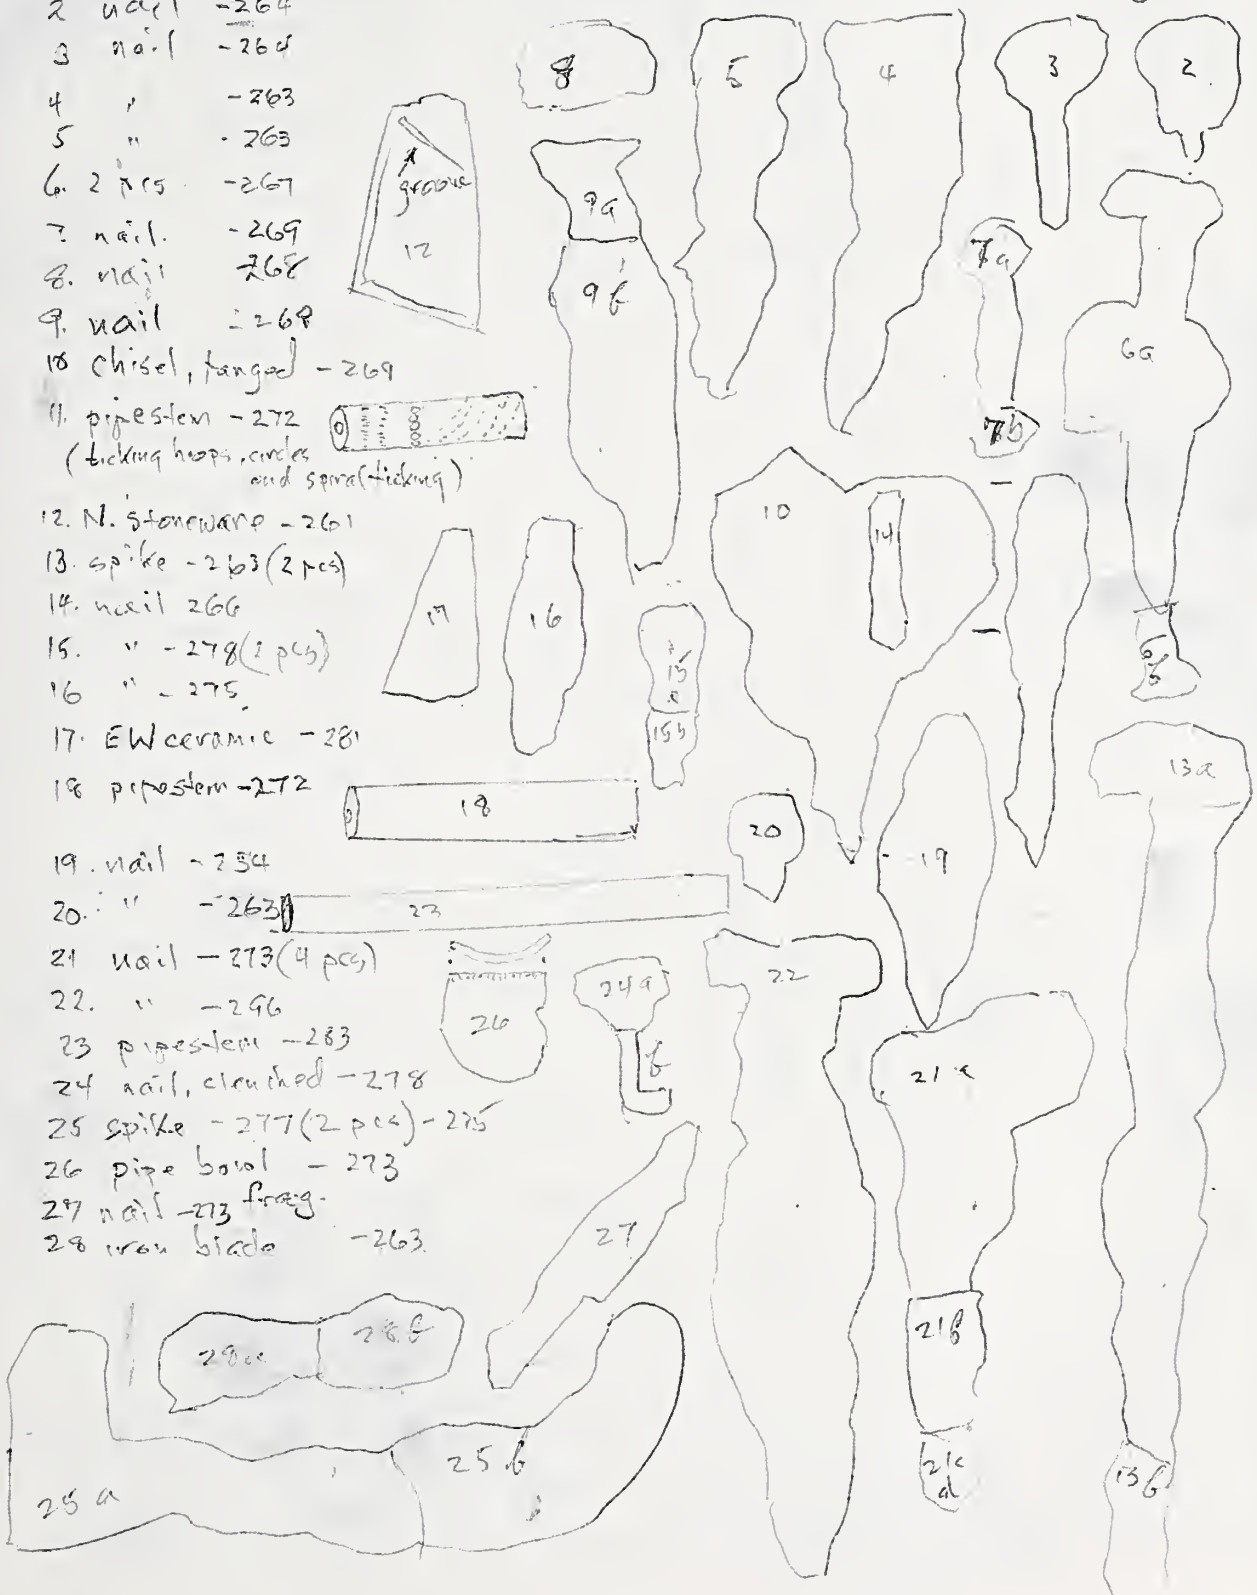 2 nail -264
3 nail -264
4 " -263
5 " -263
6. 2 pcs -267
7. nail. -269
8. nail -268
9. nail -269
10 chisel, tanged -269
11. pipestem -272
(ticking hoops, circles
and spiral ticking)
12. N. stoneware -261
13. spike -263 (2 pcs)
14. nail 266
15. " -278 (2 pcs)
16 " -275
17. EW ceramic -281
18 pipestem -272
19. nail -254
20. " -263
21 nail -273 (4 pcs)
22. " -296
23 pipestem -283
24 nail, clenched -278
25 spike -277 (2 pcs) -275
26 pipe bowl -273
27 nail -273 frag.
28 iron blade -263
8
5
4
3
2
groove
12
9a
9b
7a
7b
6a
6b
10
14
17
16
15a
15b
13a
18
20
19
23
22
24a
b
26
21a
27
21b
28a
28b
25a
25b
21c
d
13b